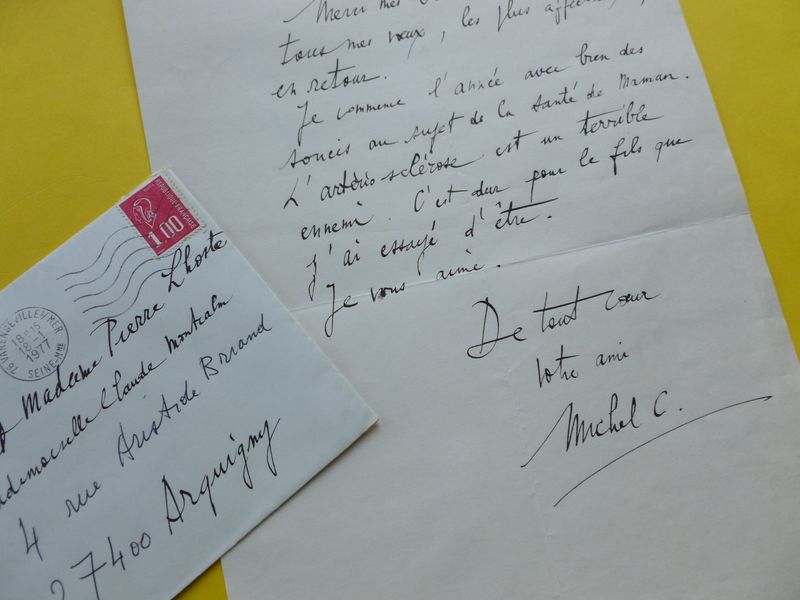 Merci mes
tous mes vœux, les plus affectueux,
en retour.
Je commence l'année avec bien des
soucis au sujet de la santé de Maman.
L'artério-sclérose est un terrible
ennemi. C'est dur pour le fils que
j'ai essayé d'être.
Je vous aime.
De tout cœur
Votre ami
Michel C.
REPUBLIQUE FRANÇAISE
1.00
76 VARENGEVILLE S/MER
18-15
18-1
1977
SEINE-MME
Madame Pierre Lhoste
Mademoiselle Claude Montcalm
4 rue Aristide Briand
27400 Arquigny